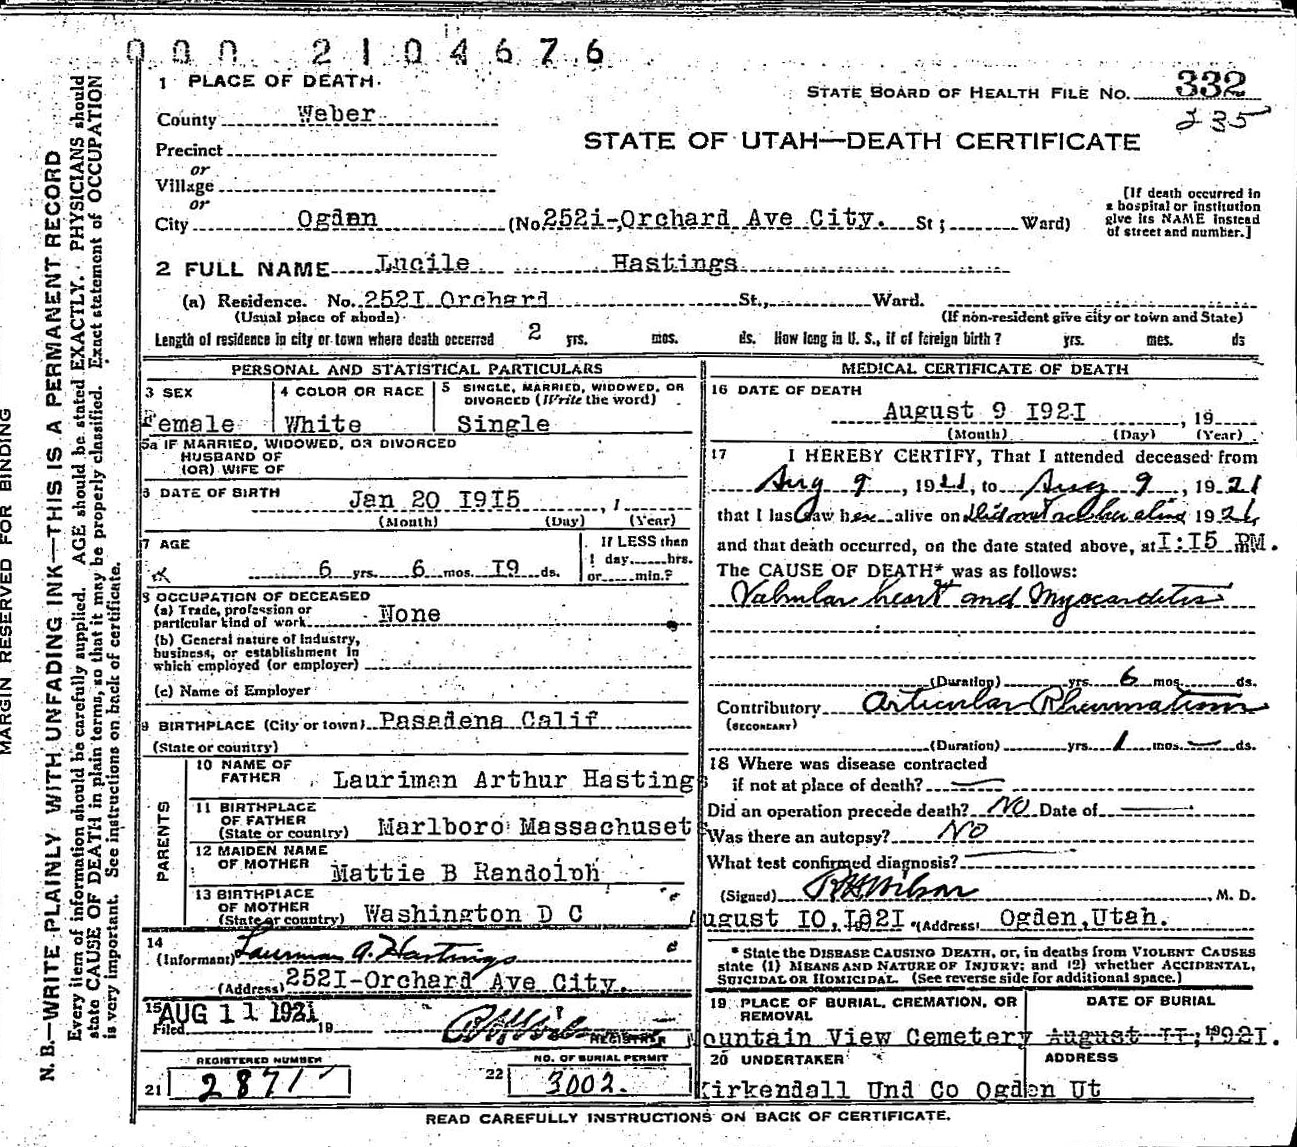 000 2104676
1 PLACE OF DEATH.
STATE BOARD OF HEALTH FILE NO. 332
235
County Weber
STATE OF UTAH—DEATH CERTIFICATE
Precinct
or
Village
or
City Ogden (No. 252I-Orchard Ave City. St; Ward)
[If death occurred in
a hospital or institution
give its NAME instead
of street and number.]
2 FULL NAME Lucile Hastings
(a) Residence. No. 252I Orchard St., Ward.
(Usual place of abode) (If non-resident give city or town and State)
Length of residence in city or town where death occerred 2 yrs. mos. ds. How long in U. S., if of foreign birth? yrs. mes. ds
PERSONAL AND STATISTICAL PARTICULARS
3 SEX Female
4 COLOR OR RACE White
5 SINGLE, MARRIED, WIDOWED, OR
DIVORCED (Write the word)
Single
5a IF MARRIED, WIDOWED, OR DIVORCED
HUSBAND OF
(OR) WIFE OF
6 DATE OF BIRTH Jan 20 I9I5
(Month) (Day) (Year)
7 AGE
6 yrs. 6 mos. I9 ds.
If LESS than
1 day hrs.
or min.?
8 OCCUPATION OF DECEASED
(a) Trade, profession or
particular kind of work None
(b) General nature of industry,
business, or establishment in
which employed (or employer)
(c) Name of Employer
9 BIRTHPLACE (City or town) Pasadena Calif
(State or country)
PARENTS
10 NAME OF
FATHER Lauriman Arthur Hasting
11 BIRTHPLACE
OF FATHER
(State or country) Marlboro Massachuset
12 MAIDEN NAME
OF MOTHER Mattie B Randolph
13 BIRTHPLACE
OF MOTHER
(State or country) Washington D C
14
(Informant) Lauriman A. Hastings
(Address) 252I-Orchard Ave City.
15 AUG 11 1921
Filed 19
REGISTRAR
REGISTERED NUMBER
21 2871
NO. OF BURIAL PERMIT
22 3002.
MEDICAL CERTIFICATE OF DEATH
16 DATE OF DEATH
August 9 I92I , 19
(Month) (Day) (Year)
17 I HEREBY CERTIFY, That I attended deceased from
Aug 9 , 1921, to Aug 9 , 1921
that I last saw her alive on Did not see her alive 1921,
and that death occurred, on the date stated above, at I:I5 PM.
The CAUSE OF DEATH* was as follows:
Valvular heart and Myocarditis
(Duration) yrs. 6 mos. ds.
Contributory Articular Rheumatism
(SECONDARY)
(Duration) yrs. 1 mos. — ds.
18 Where was disease contracted
if not at place of death? —
Did an operation precede death? NO Date of —
Was there an autopsy? NO
What test confirmed diagnosis? —
(Signed) R H Wilson M. D.
ugust IO, I92I (Address) Ogden, Utah.
* State the DISEASE CAUSING DEATH, or, in deaths from VIOLENT CAUSES
state (1) MEANS AND NATURE OF INJURY; and (2) whether ACCIDENTAL,
SUICIDAL OR HOMICIDAL. (See reverse side for additional space.)
19 PLACE OF BURIAL, CREMATION, OR
REMOVAL
ountain View Cemetery
DATE OF BURIAL
August II, I92I.
20 UNDERTAKER ADDRESS
Kirkendall Und Co Ogden Ut
READ CAREFULLY INSTRUCTIONS ON BACK OF CERTIFICATE.
MARGIN RESERVED FOR BINDING
N. B.—WRITE PLAINLY WITH UNFADING INK—THIS IS A PERMANENT RECORD
Every item of information should be carefully supplied. AGE should be stated EXACTLY. PHYSICIANS should
state CAUSE OF DEATH in plain terms, so that it may be properly classified. Exact statement of OCCUPATION
is very important. See instructions on back of certificate.